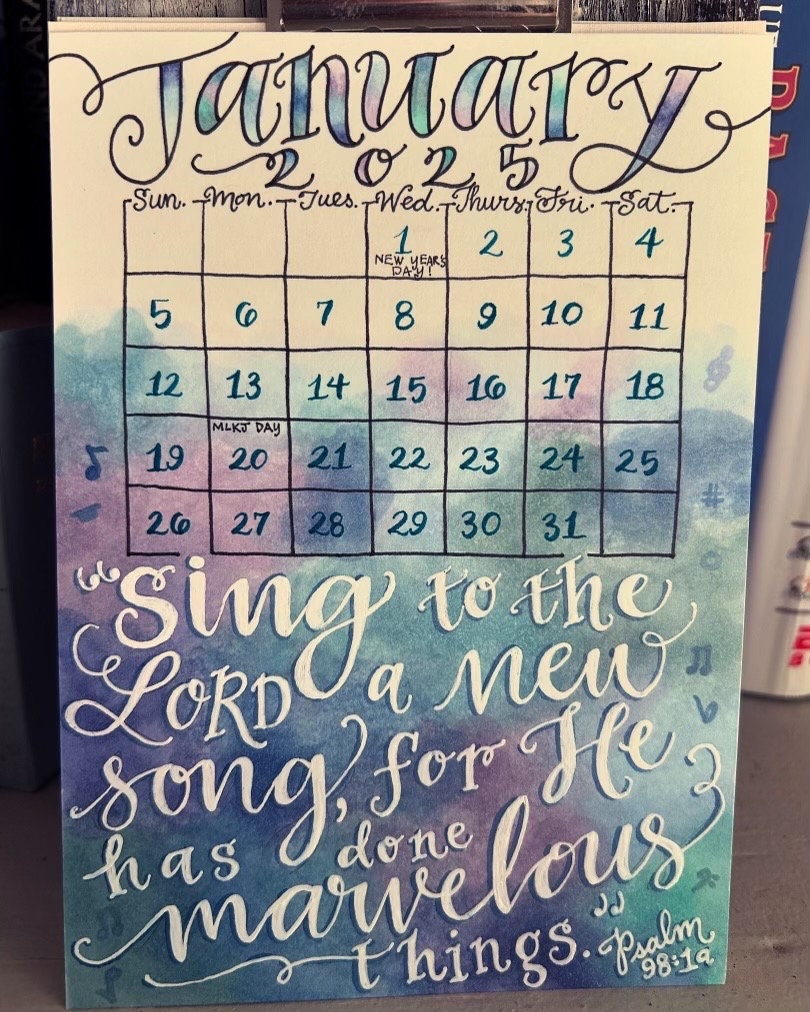 January
2025
Sun. Mon. Tues. Wed. Thurs. Fri. Sat.
1 2 3 4
NEW YEAR'S
DAY!
5 6 7 8 9 10 11
12 13 14 15 16 17 18
MLKJ DAY
19 20 21 22 23 24 25
26 27 28 29 30 31
"Sing to the
LORD a new
song, for He
has done
marvelous
things."
Psalm
98:1a